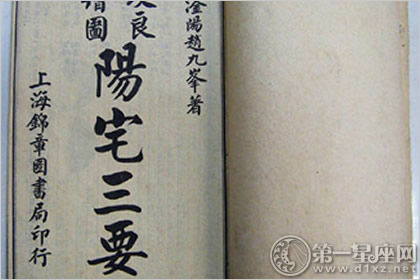 淦陽趙九峯著
改良
增圖
陽宅三要
上海錦章圖書局印行
第一星座网
www.d1xz.net